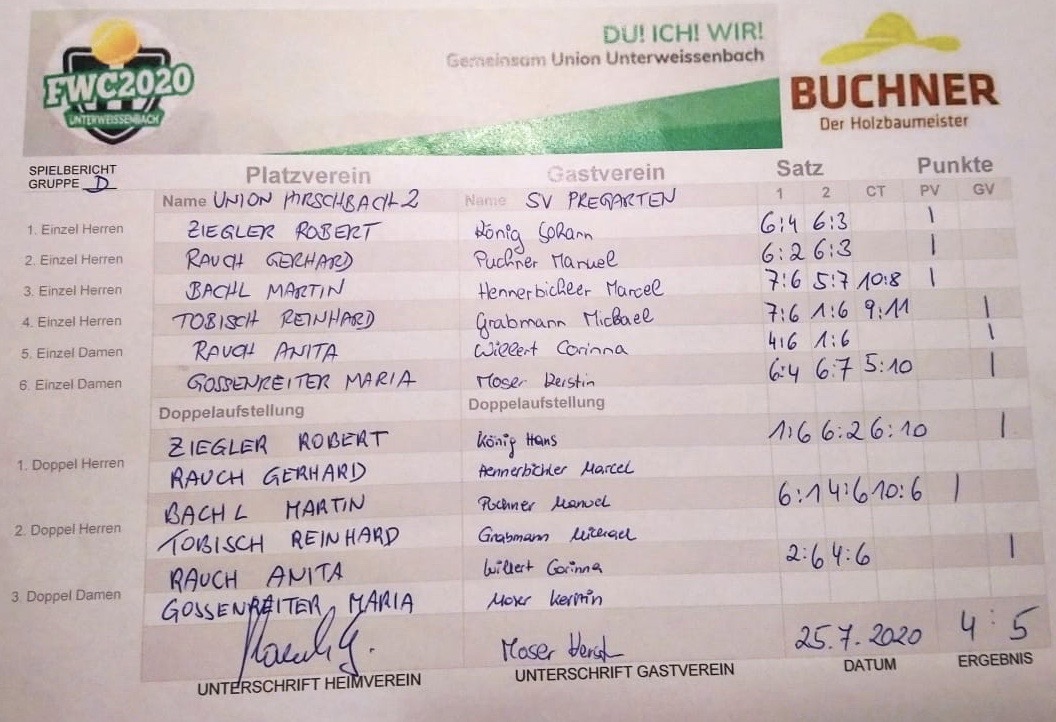 FWC2020
UNTERWEISSENBACH
DU! ICH! WIR!
Gemeinsam Union Unterweissenbach
BUCHNER
Der Holzbaumeister
SPIELBERICHT
GRUPPE D
Platzverein Gastverein Satz Punkte
Name UNION HIRSCHBACH 2 Name SV PREGARTEN 1 2 CT PV GV
1. Einzel Herren ZIEGLER ROBERT König Johann 6:4 6:3 |
2. Einzel Herren RAUCH GERHARD Puchner Manuel 6:2 6:3 |
3. Einzel Herren BACHL MARTIN Hennerbichler Marcel 7:6 5:7 10:8 |
4. Einzel Herren TOBISCH REINHARD Grabmann Michael 7:6 1:6 9:11 |
5. Einzel Damen RAUCH ANITA Willert Corinna 4:6 1:6 |
6. Einzel Damen GOSSENREITER MARIA Moser Kerstin 6:4 6:7 5:10 |
Doppelaufstellung Doppelaufstellung
ZIEGLER ROBERT König Hans 1:6 6:2 6:10 |
1. Doppel Herren
RAUCH GERHARD Hennerbichler Marcel
BACHL MARTIN Puchner Manuel 6:1 4:6 10:6 |
2. Doppel Herren
TOBISCH REINHARD Grabmann Michael
RAUCH ANITA Willert Corinna 2:6 4:6 |
3 Doppel Damen
GOSSENREITER MARIA Moser Kerstin
Moser 25.7.2020 4:5
UNTERSCHRIFT HEIMVEREIN UNTERSCHRIFT GASTVEREIN DATUM ERGEBNIS